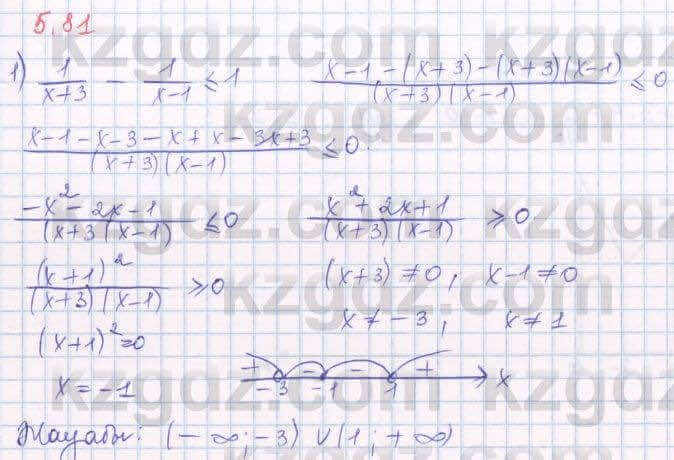 5.81
1) 1/(x+3) - 1/(x-1) ≤ 1    (x-1-(x+3)-(x+3)(x-1))/((x+3)(x-1)) ≤ 0
(x-1-x-3-x+x-3x+3)/((x+3)(x-1)) ≤ 0.
(-x²-2x-1)/((x+3(x-1)) ≤ 0    (x²+2x+1)/((x+3)(x-1)) ≥ 0
(x+1)²/((x+3)(x-1)) ≥ 0    (x+3) ≠ 0, x-1 ≠ 0
x ≠ -3, x ≠ 1
(x+1)² = 0
+ - - +
x = -1    -3 -1 1 x
Жауабы: (-∞;-3) ∪ (1;+∞)
kzgdz.com
kzgdz.com
kzgdz.com
kzgdz.com